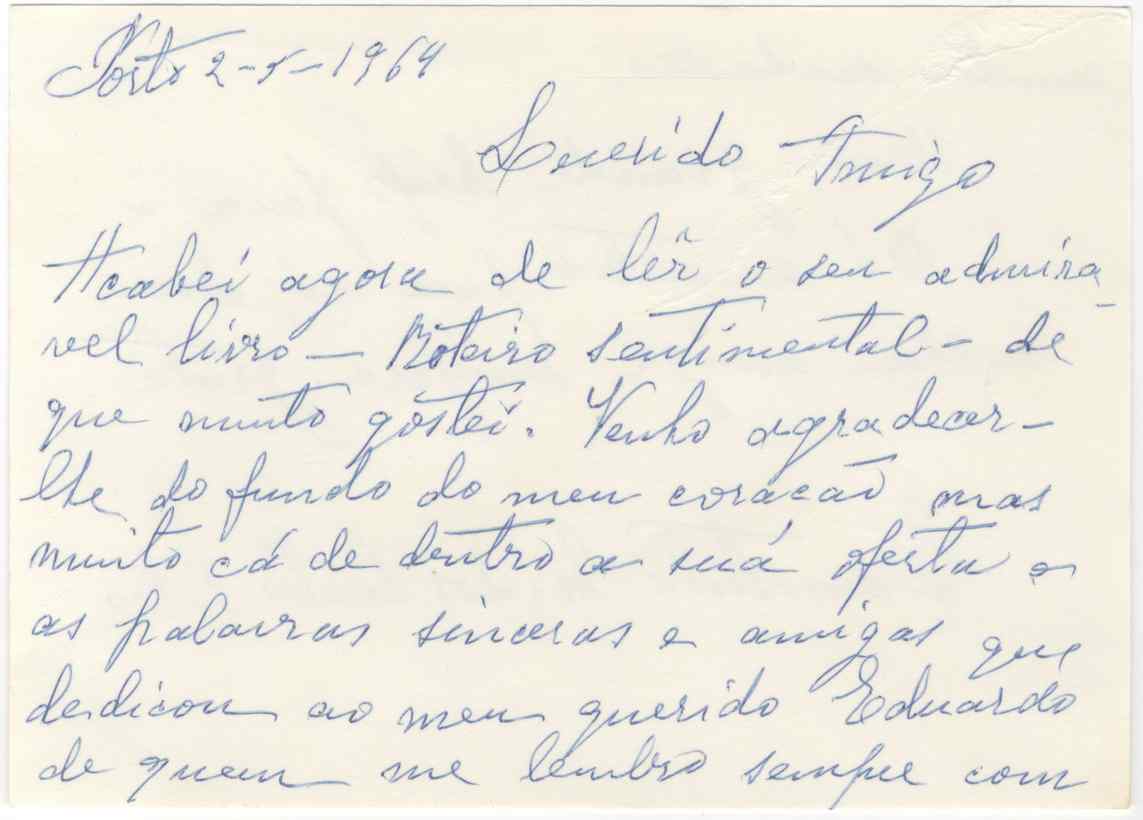 Porto 2-5-1964
Querido Amigo
Acabei agora de lêr o seu admira-
vel livro — Roteiro sentimental — de
que muito gostei. Venho agradecer-
lhe do fundo do meu coracão mas
muito cá de dentro a suá oferta e
as palavras sinceras e amigas que
dedicou ao meu querido Eduardo
de quem me lembro sempre com